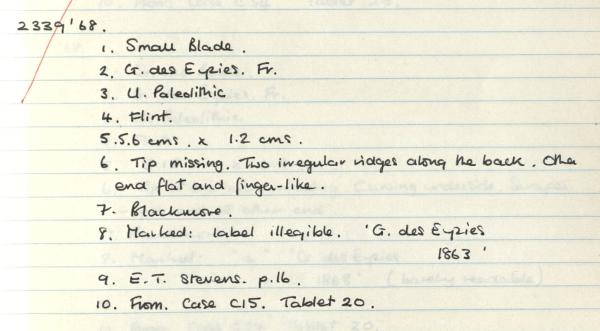 2339'68.
1. Small Blade.
2. G. des Eyzies. Fr.
3. U. Paleolithic
4. Flint.
5. 5.6 cms. x 1.2 cms.
6. Tip missing. Two irregular ridges along the back. Other
end flat and finger-like.
7. Blackmore.
8. Marked: label illegible. 'G. des Eyzies
1863'
9. E.T. Stevens. p.16.
10. From. Case C15. Tablet 20.